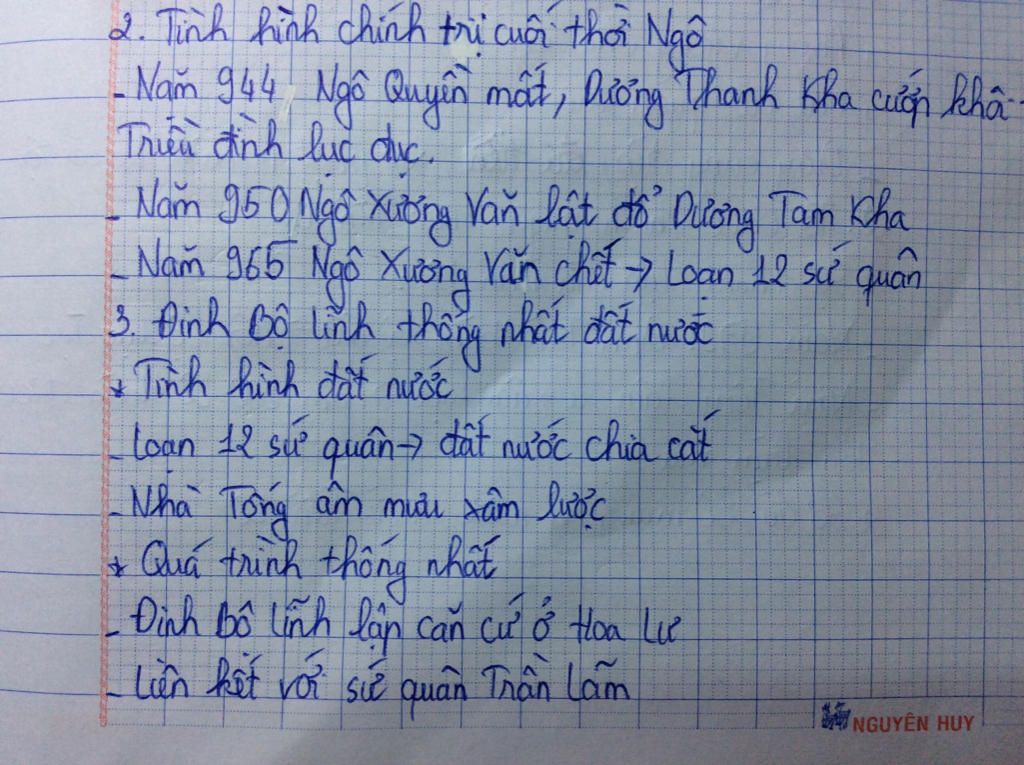 2. Tình hình chính trị cuối thời Ngô
- Năm 944 Ngô Quyền mất, Dương Thanh Kha cướp khâ
Triều đình lục đục.
- Năm 950 Ngô Xương Văn lật đổ Dương Tam Kha
- Năm 965 Ngô Xương Văn chết → Loạn 12 sứ quân
3. Đinh Bộ Lĩnh thống nhất đất nước
* Tình hình đất nước
- Loạn 12 sứ quân → đất nước chia cắt
- Nhà Tống âm mưu xâm lược
* Quá trình thống nhất
- Đinh Bộ Lĩnh lập căn cứ ở Hoa Lư
- Liên kết với sứ quân Trần Lãm
NGUYÊN HUY